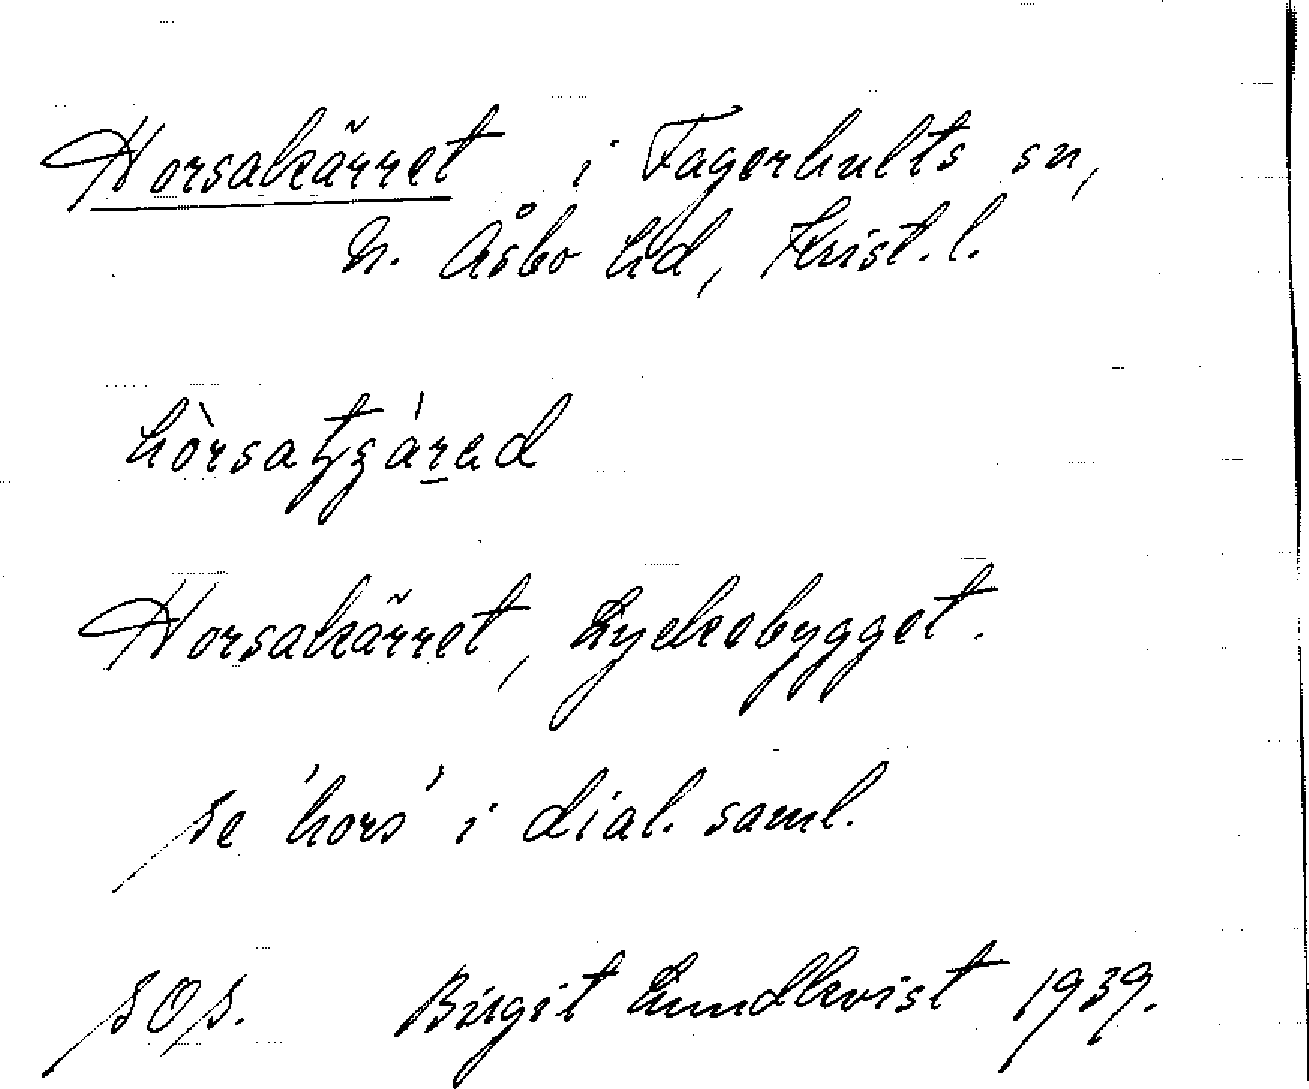 Horsakärret i Fagerhults sn,
N. Åsbo hd, Krist. l.
Horsakärret, Lyckebygget.
se 'hors' i dial. saml.
sOs. Birgit Lundkvist 1939.